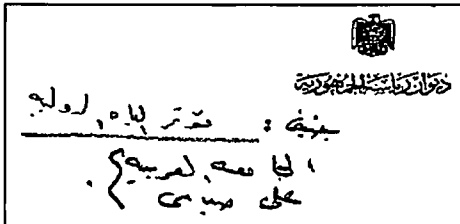 ديوان رئاسة الجمهورية
جنيف : مؤتمر المياه الدولية
الجامعة العربية
على